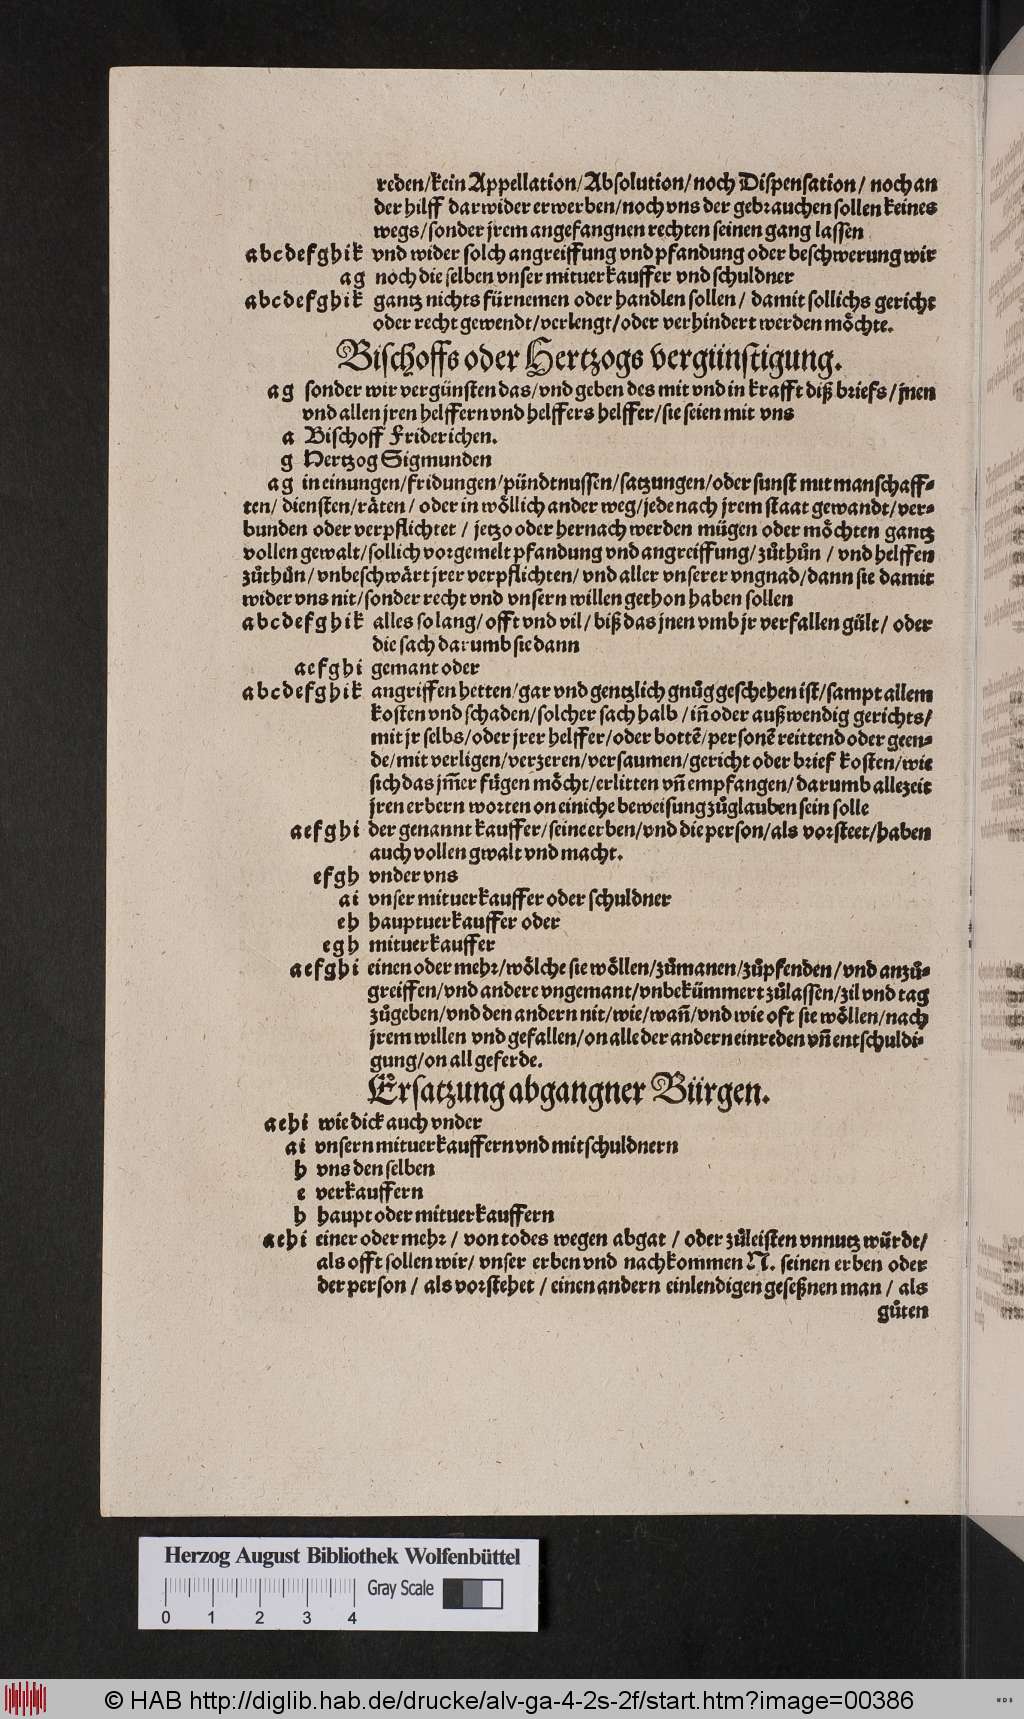 reden/kein Appellation/Absolution/noch Dispensation/ noch an
der hilff darwider erwerben/noch vns der gebrauchen sollen keines
wegs/sonder jrem angefangnen rechten seinen gang lassen
a b c d e f g h i k vnd wider solch angreiffung vnd pfandung oder beschwerung wir
a g noch die selben vnser mituerkauffer vnd schuldner
a b c d e f g h i k gantz nichts fürnemen oder handlen sollen/ damit sollichs gericht
oder recht gewendt/verlengt/oder verhindert werden möchte.
Bischoffs oder Hertzogs vergünstigung.
a g sonder wir vergünsten das/vnd geben des mit vnd in krafft diß briefs/jnen
vnd allen jren helffern vnd helffers helffer/sie seien mit vns
a Bischoff Friderichen.
g Hertzog Sigmunden
a g in einungen/fridungen/pündtnussen/satzungen/oder sunst mit manschaff-
ten/ diensten/räten/ oder in wöllich ander weg/jede nach jrem staat gewandt/ver-
bunden oder verpflichtet / jetzo oder hernach werden mügen oder möchten gantz
vollen gewalt/sollich vorgemelt pfandung vnd angreiffung/zůthůn / vnd helffen
zůthůn/vnbeschwärt jrer verpflichten/vnd aller vnserer vngnad/dann sie damit
wider vns nit/sonder recht vnd vnsern willen gethon haben sollen
a b c d e f g h i k alles so lang/offt vnd vil/biß das jnen vmb jr verfallen gült/ oder
die sach darumb sie dann
a e f g h i gemant oder
a b c d e f g h i k angriffen hetten/gar vnd gentzlich gnůg geschehen ist/sampt allem
kosten vnd schaden/solcher sach halb /iñ oder außwendig gerichts/
mit jr selbs/oder jrer helffer/oder bottē/personē reittend oder geen-
de/mit verligen/verzeren/versaumen/gericht oder brief kosten/wie
sich das jm̃er fügen möcht/erlitten vñ empfangen/darumb allezeit
jren erbern worten on einiche beweisung zůglauben sein solle
a e f g h i der genannt kauffer/seine erben/vnd die person/als vorsteet/haben
auch vollen gwalt vnd macht.
e f g h vnder vns
a i vnser mituerkauffer oder schuldner
e h hauptuerkauffer oder
e g h mituerkauffer
a e f g h i einen oder mehr/wölche sie wöllen/zůmanen/zůpfenden/vnd anzů-
greiffen/vnd andere vngemant/vnbekümmert zůlassen/zil vnd tag
zůgeben/vnd den andern nit/wie/wañ/vnd wie oft sie wöllen/nach
jrem willen vnd gefallen/on alle der andern einreden vñ entschuldi-
gung/on all geferde.
Ersatzung abgangner Bürgen.
a e h i wie dick auch vnder
a i vnsern mituerkauffern vnd mitschuldnern
h vns den selben
e verkauffern
h haupt oder mituerkauffern
a e h i einer oder mehr / von todes wegen abgat / oder zůleisten vnnutz würdt/
als offt sollen wir/ vnser erben vnd nachkommen N. seinen erben oder
der person / als vorstehet / einen andern einlendigen geseßnen man / als
gůten
Herzog August Bibliothek Wolfenbüttel
Gray Scale
0 1 2 3 4
© HAB http://diglib.hab.de/drucke/alv-ga-4-2s-2f/start.htm?image=00386